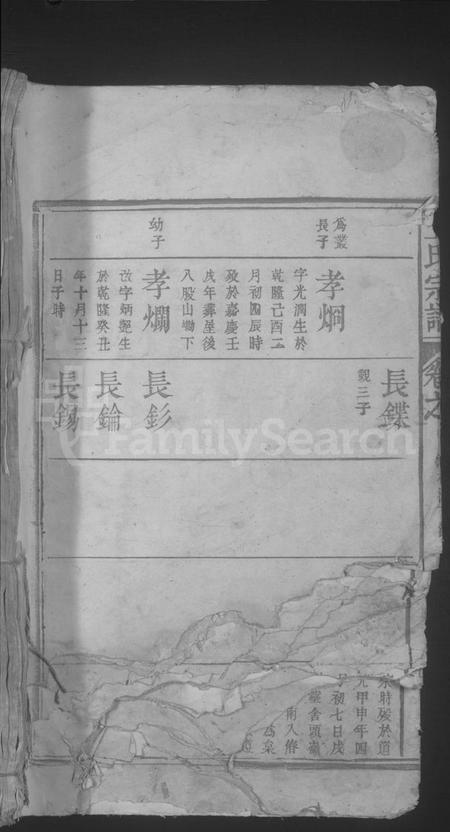 氏宗譜
卷之
為叢
長子
孝炯
字光潤生於
乾隆己酉二
月初四辰時
歿於嘉慶壬
戌年葬屋後
八股山坳下
幼子
孝爛
改字炳
生
於乾隆癸丑
年十月十三
日子時
長鏶
觀三子
長釤
長錀
長錫
時歿於道
光甲申年四
初七日戌
舍頭
南入脩
為
FamilySearch